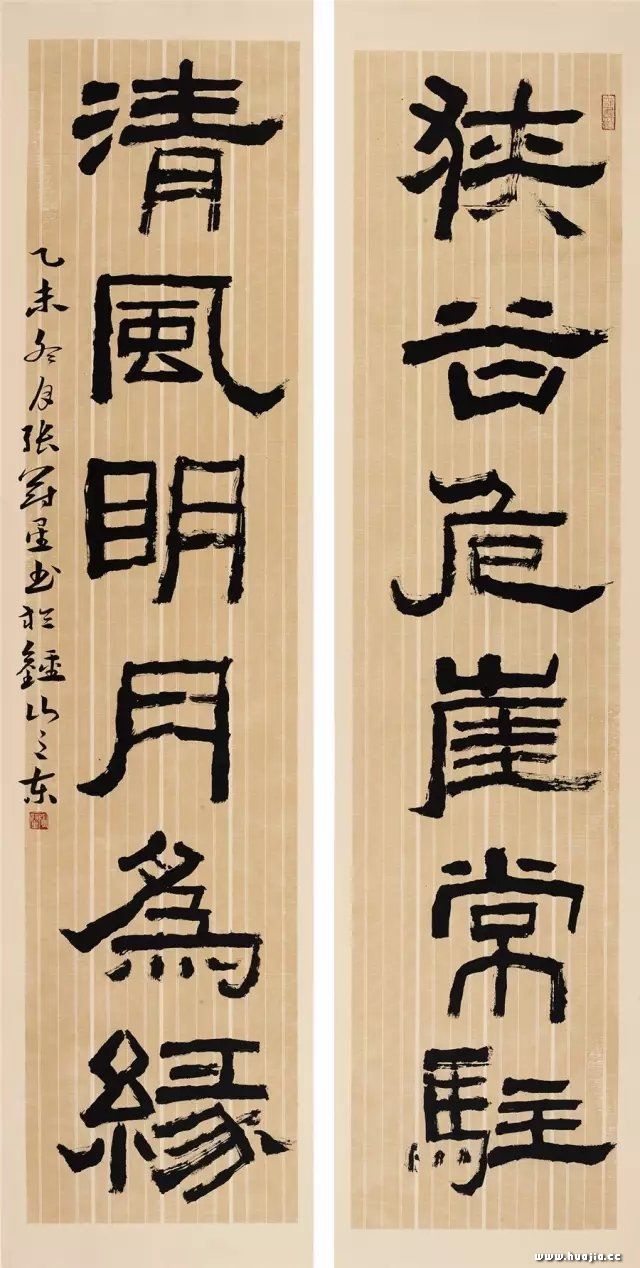 狭谷危崖常駐
清風明月爲緣
乙未冬月張爵星书於鍾山之东
www.huajia.cc